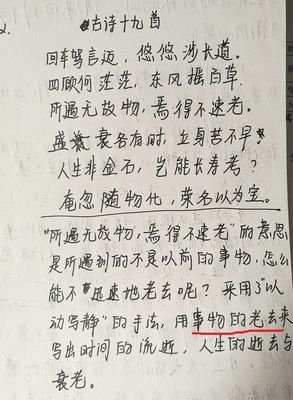 2.
古诗十九首
回车驾言迈，悠悠涉长道。
四顾何茫茫，东风摇百草。
所遇无故物，焉得不速老。
盛衰各有时，立身苦不早。
人生非金石，岂能长寿考？
奄忽随物化，荣名以为宝。
"所遇无故物，焉得不速老"的意思
是所遇到的不是以前的事物，怎么
能不迅速地老去呢？采用了"以
动写静"的手法，用事物的老去来
写出时间的流逝，人生的逝去与
衰老。